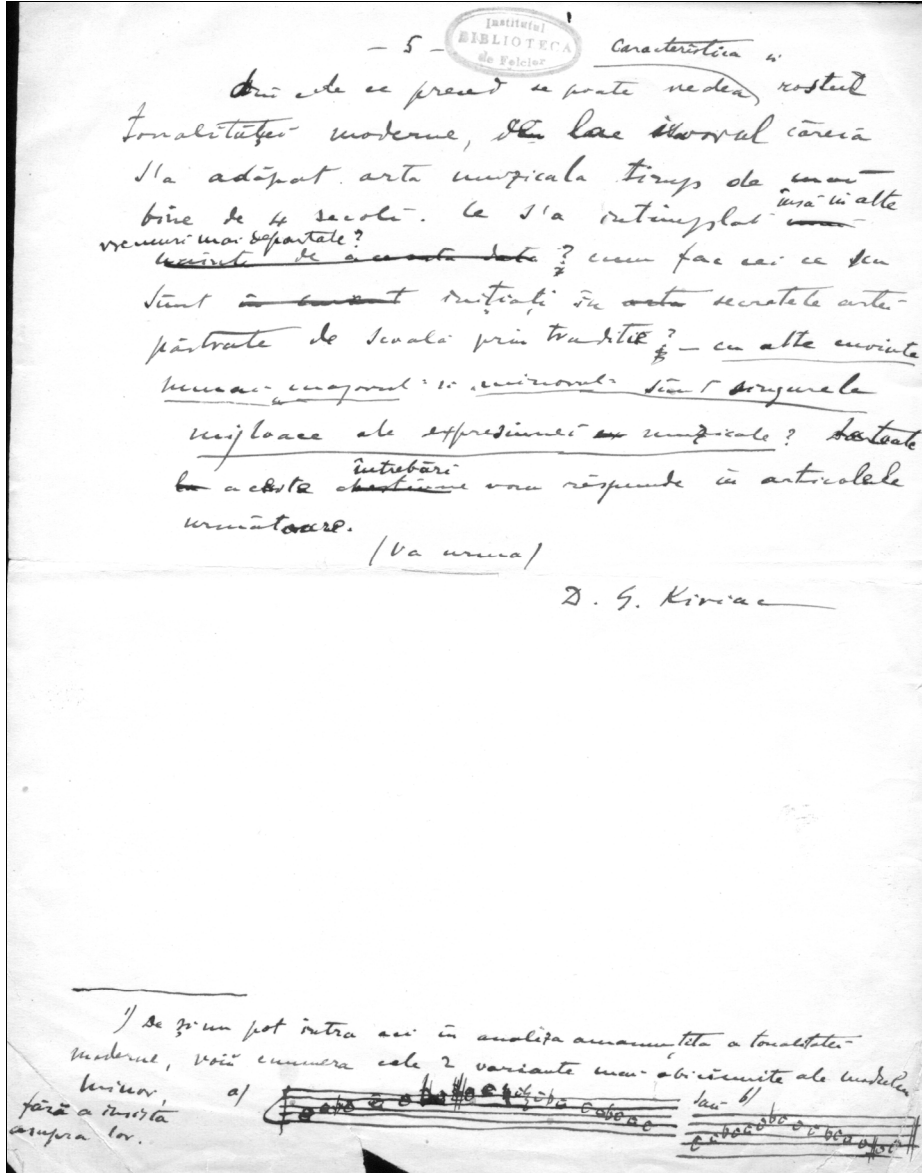 – 5 –
Institutul
BIBLIOTECA
de Folclor
caracteristica și
Din cele ce preced se poate vedea rostul
tonalităței moderne, la isvorul căreia
s'a adăpat arta muzicala timp de mai
bine de 4 secole. Ce s'a intimplat însă in alte
vremuri mai departate?
inainte de aceasta data ? cum fac cei ce nu
sûnt inițiați în arta secretele artei
păstrate de scoală prin traditie ? – cu alte cuvinte
numai "majorul" si "minorul" sûnt singurele
mijloace ale expresiunei muzicale ? La toate
întrebări
la aceste chestiune vom rěspunde în articolele
următoare.
(Va urma)
D. G. Kiriac
1) De și nu pot intra aci în analiza amanunțita a tonalitatei
moderne, voiŭ enumera cele 2 variante mai obicinuite ale modului
minor, a) sau b)
fără a insista
asupra lor.